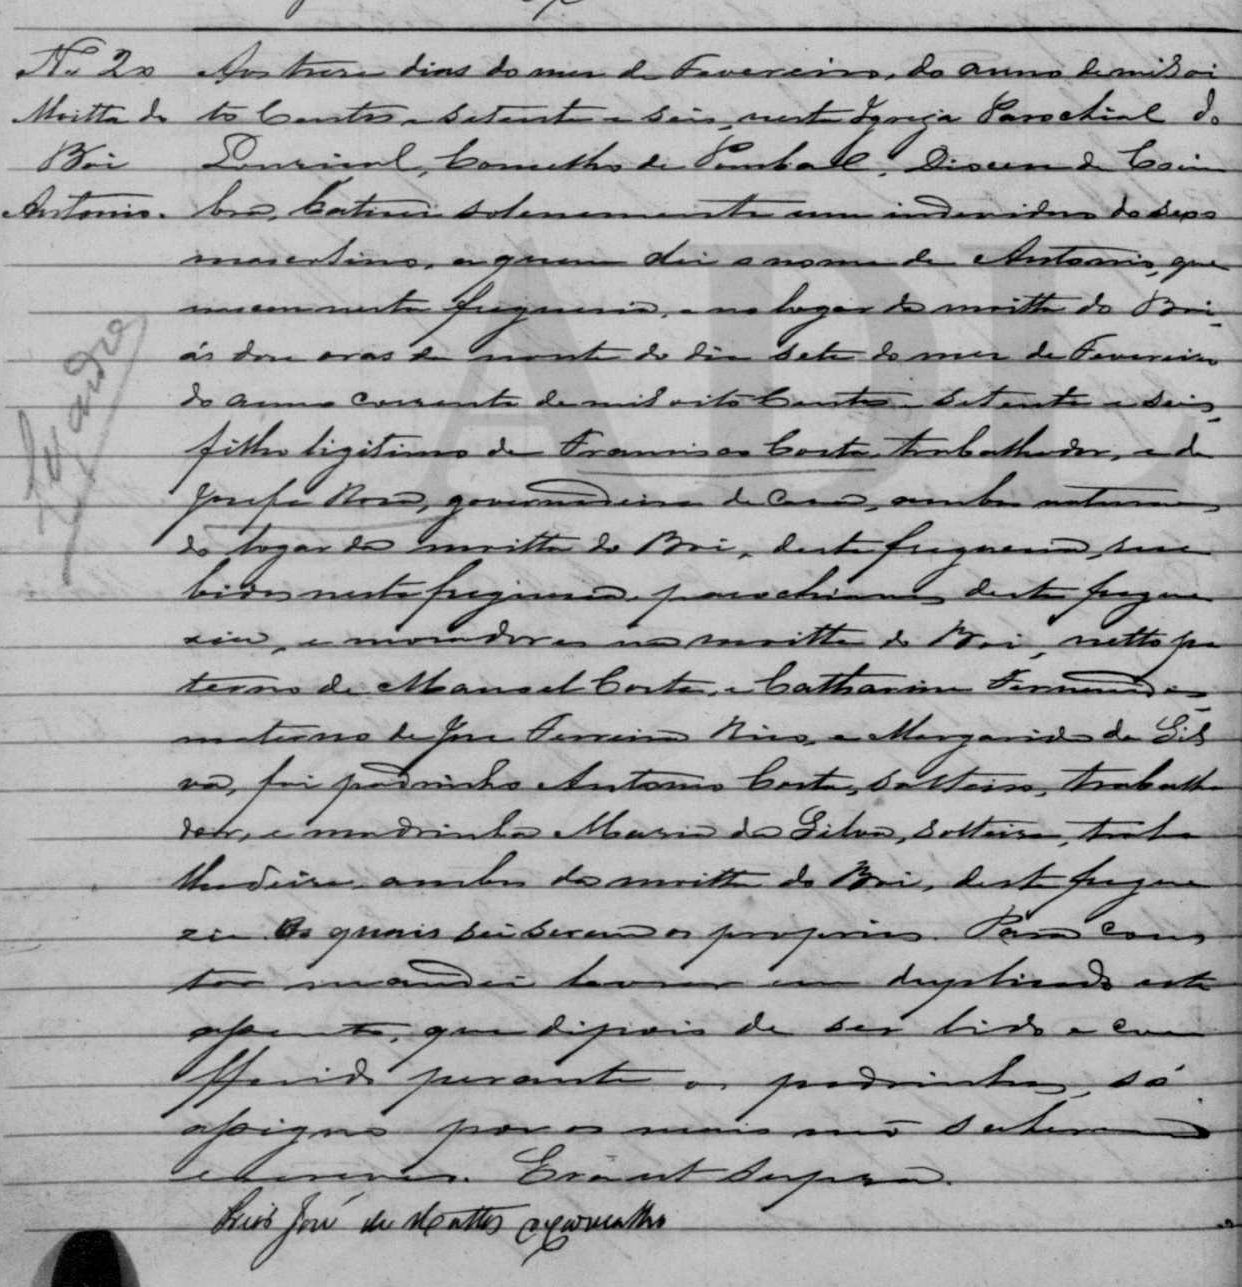 Nº 20
Moitta do
Boi
Antonio.
Aos treze dias do mez de Fevereiro, do anno de mil oi
to Centos e setenta e seis, nesta Igreja Parochial do
Louriçal, Concelho de Pombal, Diocese de Coim
bra, Baticei solenemente um individuo do sexo
masculino, a quem dei o nome de Antonio, que
nasceu nesta freguesia, e no logar da moitta do Boi,
ás doze oras da noute do dia sete do mez de Fevereiro
do anno corrente de mil oito Centos e setenta e seis,
filholigitimo de Francisco Costa, trabalhador, e de
Josefa Rosa, governadeira de casa, ambos naturaes
do logar da moitta do Boi, desta freguesia, rece
bidos nesta freguesia, parochianos desta fregue
zia, e moradores na moitta do Boi, netto pa
terno de Manoel Costa, e Catharina Fernandes,
materno de Jose Ferreira Rico, e Margarida da Sil
va, foi padrinho Antonio Costa, solteiro, trabalha
dor, e madrinha Maria da Silva, solteira, traba
lhadeira, ambos da moitta do Boi, desta fregue
zia Os quais sei serem os proprios. Para cons
tar mandei lavrar em duplicado este
assento, que dipois de ser lido e con
fferido perante os padrinhos, só
assigno por os mais não saberem
escrever. Era ut supra.
José de Mattos e Carvalho
ADL